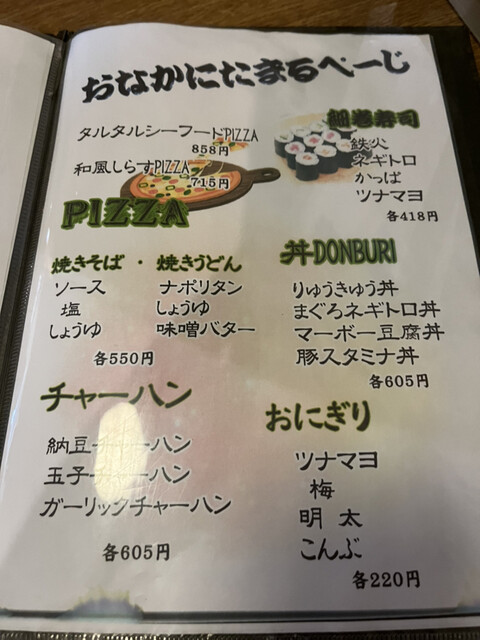 おなかにたまるぺーじ
タルタルシーフードPIZZA
858円
和風しらすPIZZA
715円
PIZZA
細巻寿司
鉄火
ネギトロ
かっぱ
ツナマヨ
各418円
焼きそば・焼きうどん
ソース ナポリタン
塩 しょうゆ
しょうゆ 味噌バター
各550円
丼DONBURI
りゅうきゅう丼
まぐろネギトロ丼
マーボー豆腐丼
豚スタミナ丼
各605円
チャーハン
納豆チャーハン
玉子チャーハン
ガーリックチャーハン
各605円
おにぎり
ツナマヨ
梅
明太
こんぶ
各220円